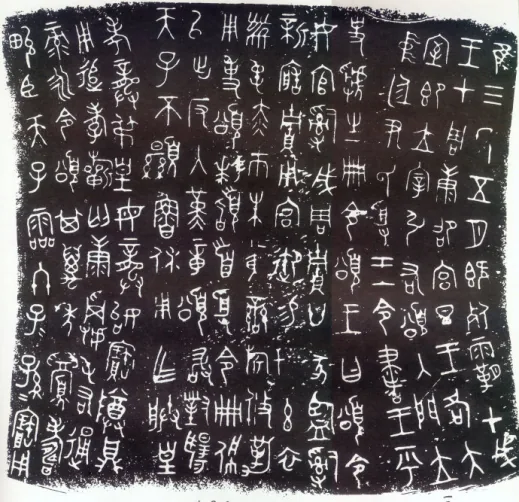 隹三年五月既死霸甲戌
王才周康邵宮旦王各大
室即立宰引右頌入門立
中廷尹氏受王令書王乎
史虢生冊令頌王曰頌令
女官𤔲成周貯廿家監𤔲
新造貯用宮御易女玄衣
黹屯赤巿朱黃䜌旂攸勒
用事頌拜稽首受令冊佩
㠯出反入堇章頌敢對揚
天子不顯魯休用乍朕皇
考龏弔皇母龏始寶尊鼎
用追孝祈匄康龢屯右通
彔永令頌其萬年眉壽
畯臣天子霝冬子子孫孫寶用